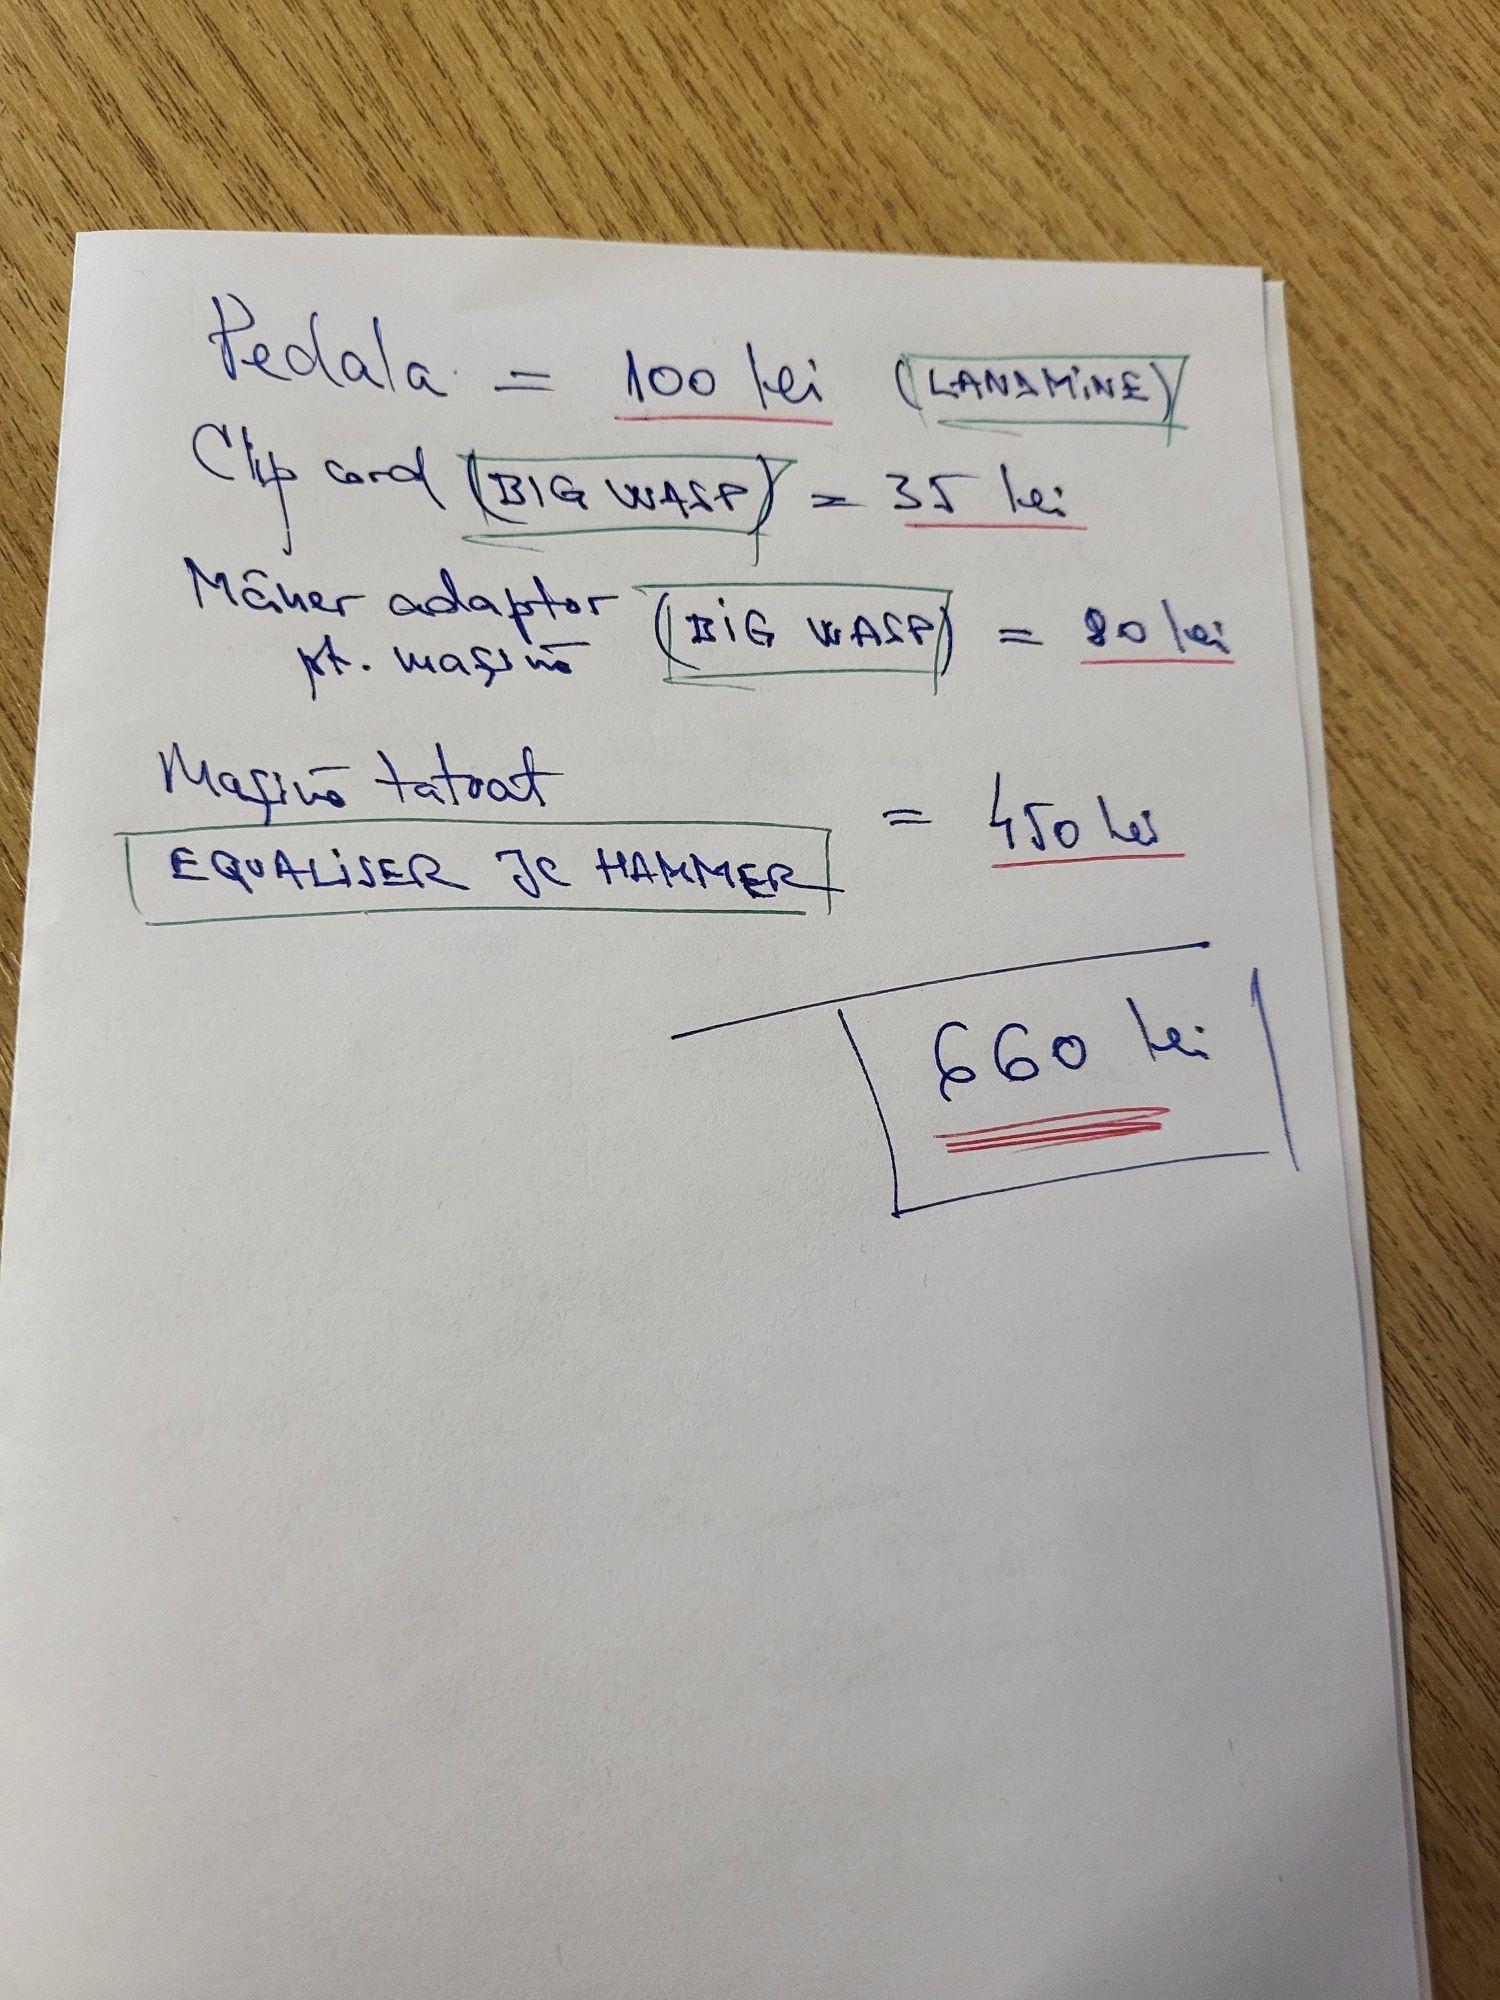 Pedala = 100 lei (LANDMINE)
Clip cord (BIG WASP) = 35 lei
Mâner adaptor (BIG WASP) = 80 lei
pt. mașină
Mașină tatuat = 450 lei
EQUALISER JC HAMMER
660 lei